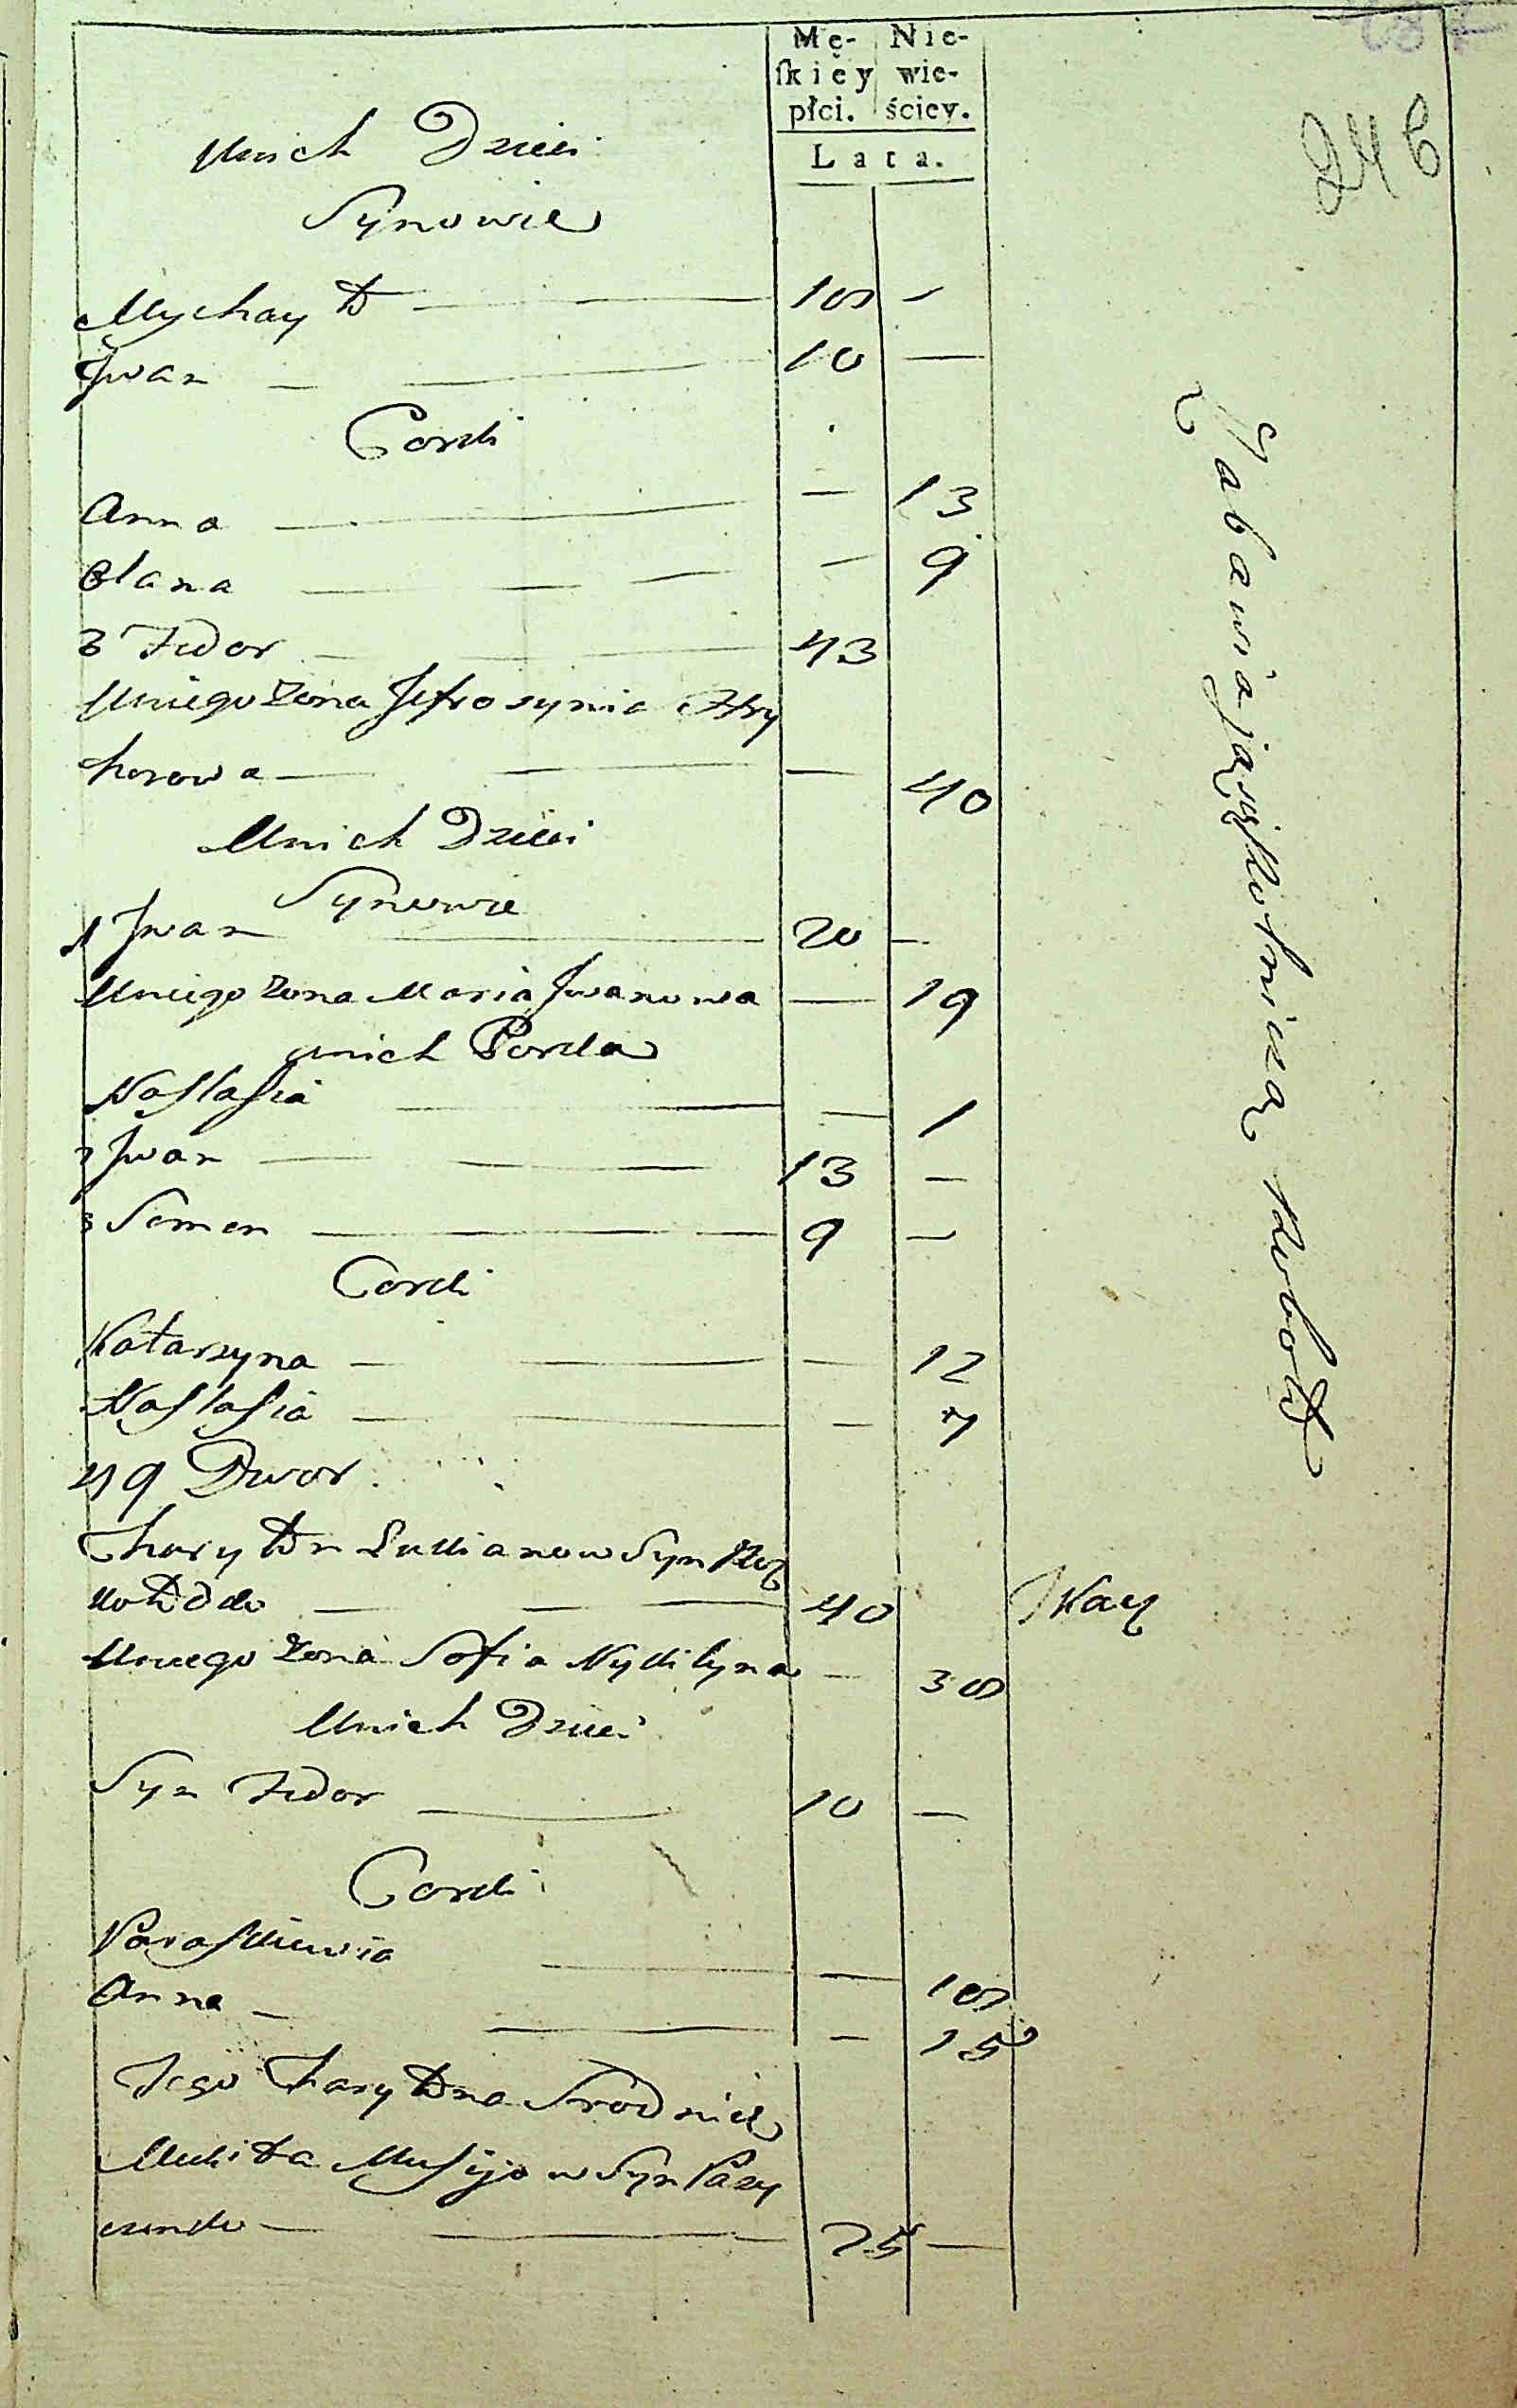 Mę- Nie-
ſkiey wie-
płci. ściey.
Lata.
246
Unich Dzieci
Synowie
Mychayło 18 -
Jwan 10 -
Corki
Anna - 13
Olana - 9
3 Fedor 43
Uniego Żona Jefrosynia Hry
horowa - 40
Unich Dzieci
Synowie
1 Jwan 20 -
Uniego Żona Maria Jwanowa - 19
unich Corka
Nastasia - 1
2 Jwan 13 -
3 Semen 9 -
Corki
Katarzyna - 12
Nastasia - 7
49 Dwor.
Charyton Lukianow Syn
40 Tkacz
Uniego Żona Sofia Nykityna - 38
Unich Dzieci
Syn Fedor 10 -
Corki
Paraskiewia - 18
Anna - 15
Jego Charytona
Mikita Musijow Syn
25 -
Zabawia ją się rolniczą robotą